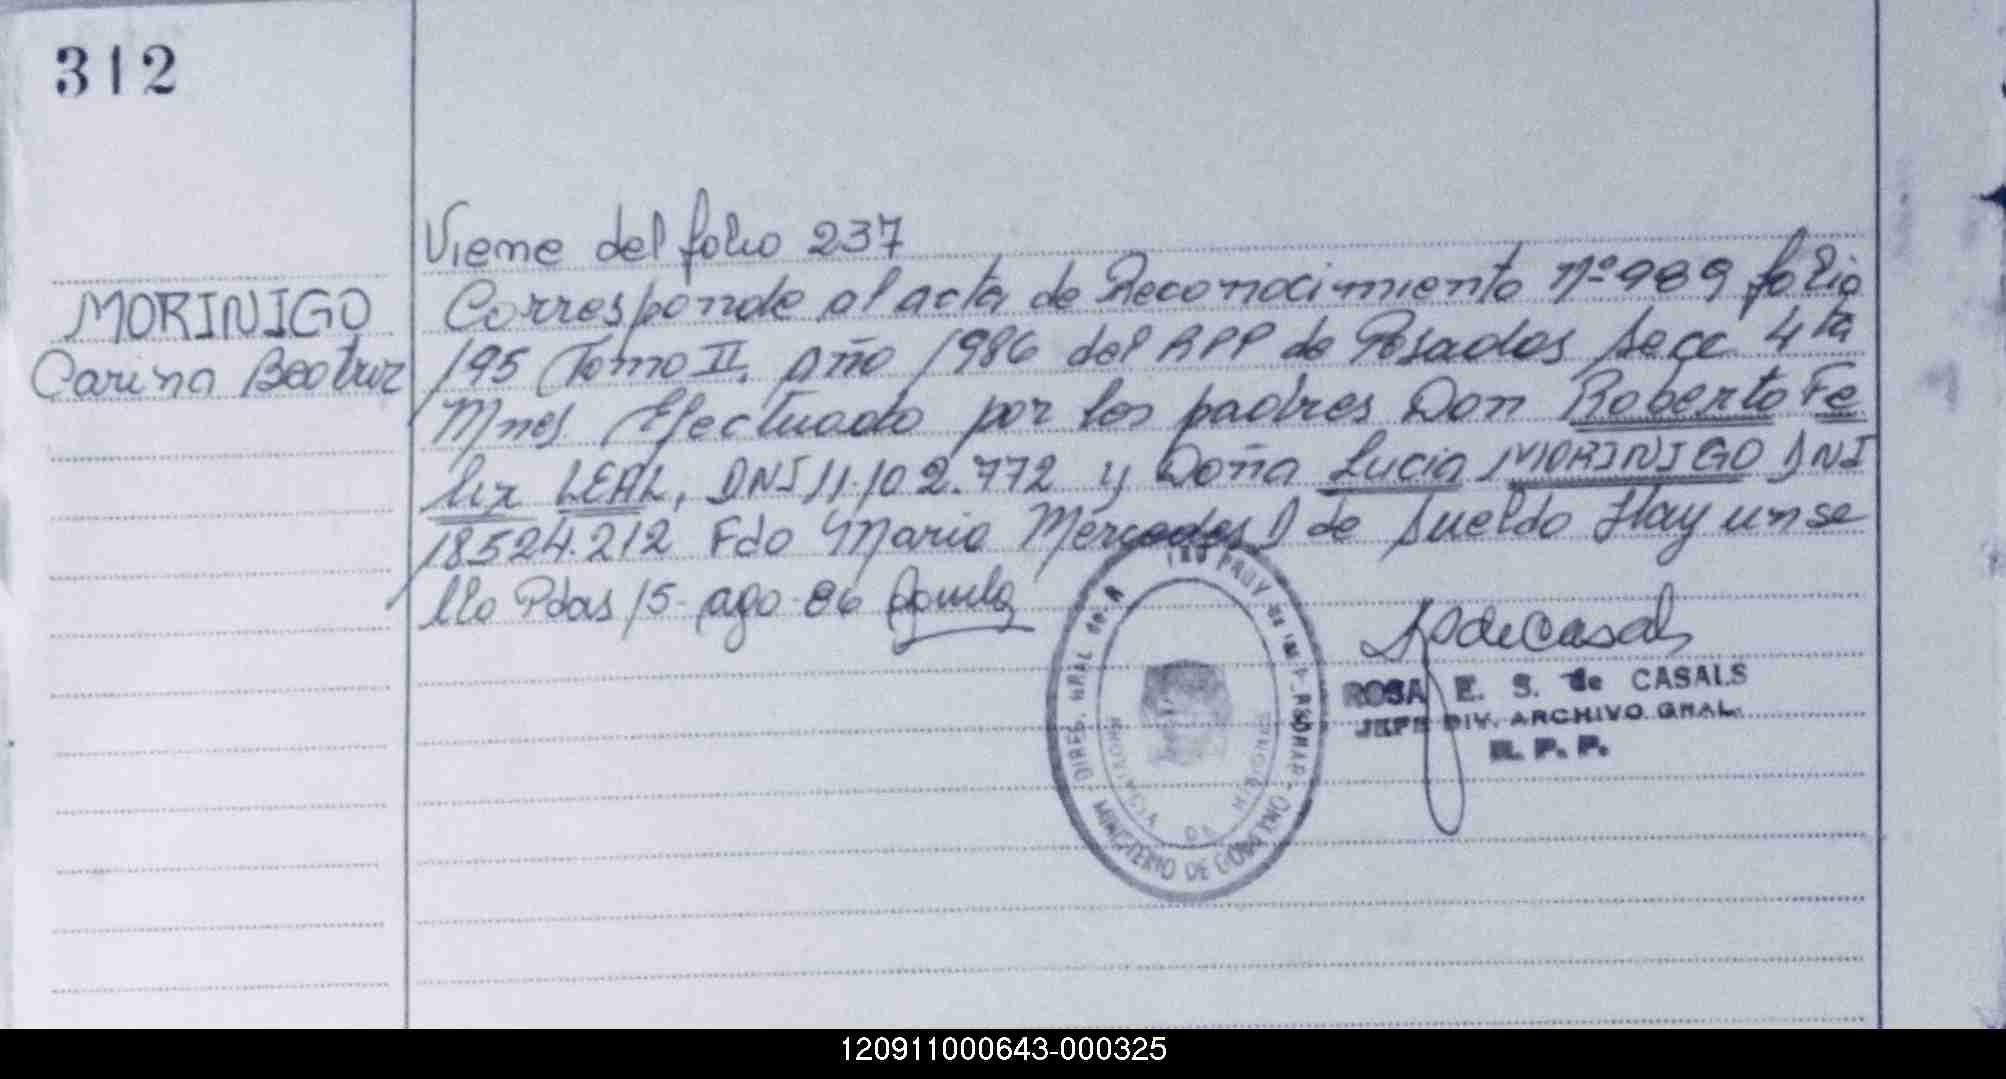 312
Viene del folio 237
MORINIGO
Carina Beatriz
Corresponde al acta de Reconocimiento Nº 989 folio
195 Tomo II, año 1986 del RPP de Posadas Secc 4ta
Mnes. Efectuado por los padres Don Roberto Fe
lix LEAL, DNI 11.102.772 y Doña Lucia MORINIGO DNI
18524.212 Fdo Maria Mercedes D de Sueldo Hay un se
llo Pdas 15-ago-86
ROSA E. S. de CASALS
JEFE DIV. ARCHIVO GRAL.
R. P. P.
DIREC. GRAL del
MINISTERIO DE GOBIERNO
PROVINCIA DE MISIONES
120911000643-000325